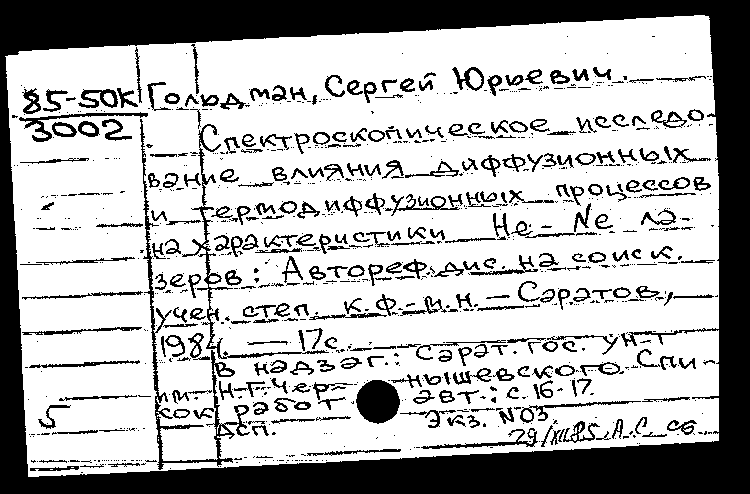 85-50К Гольдман, Сергей Юрьевич.
3002
Спектроскопическое исследо-
вание влияния диффузионных
и термодиффузионных процессов
на характеристики He-Ne ла-
зеров: Автореф. дис. на соиск.
учен. степ. к.ф.-м.н. — Саратов,
1984. — 17с.
В надзаг.: Сарат. гос. ун-т
им. Н.Г. Чернышевского. Спи-
5 сок работ авт.: с. 16-17.
ДСП. Экз. N03
29/XII85